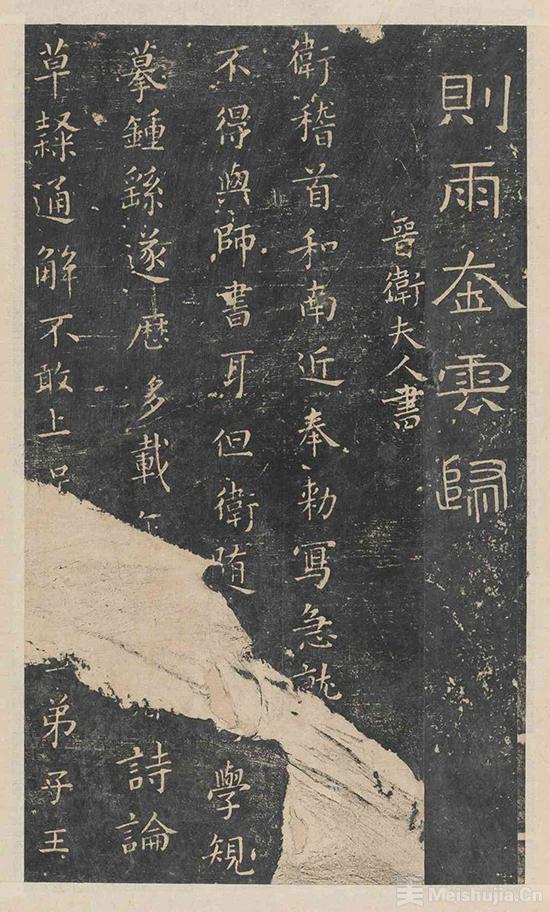 則雨夲雲歸
晉衛夫人書
衛稽首和南近奉勅寫急就
不得與師書耳但衛随 學規
摹鍾繇遂歷多載 詩論
草隸通解不敢上 弟子王
美 Meishujia.Cn